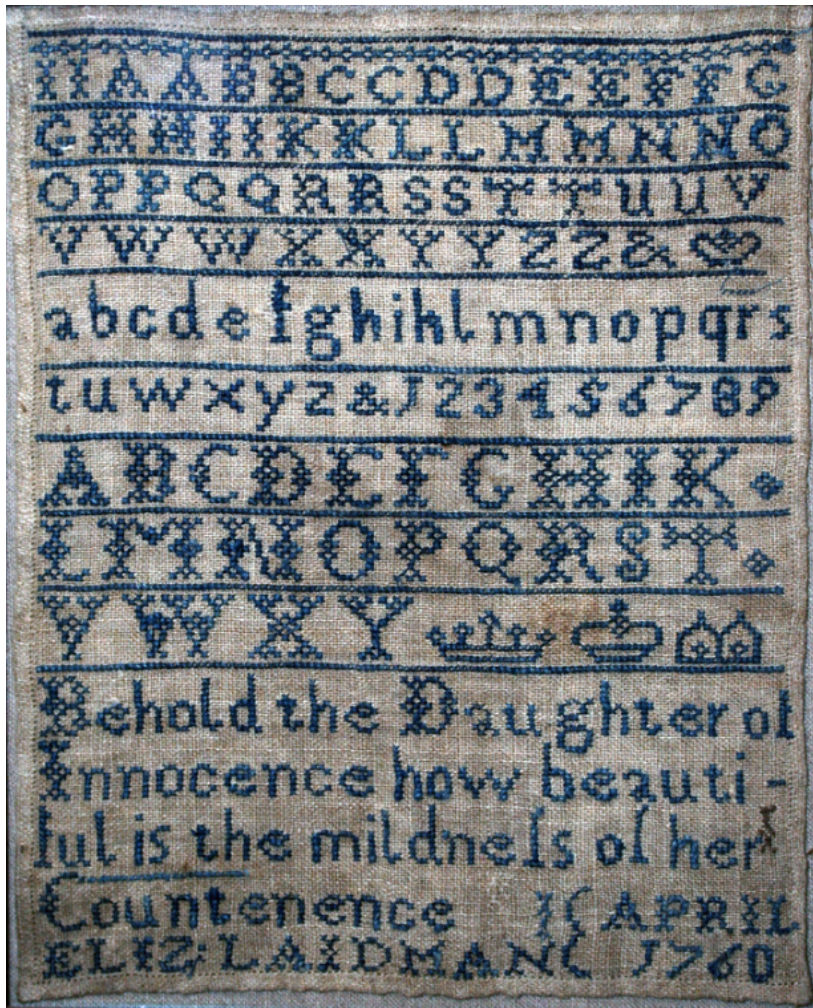 A A A B B C C D D E E F F G
G H H I I K K L L M M N N O
O P P Q Q R R S S T T U U V
V W W X X Y Y Z Z &
a b c d e f g h i k l m n o p q r s
t u w x y z & 1 2 3 4 5 6 7 8 9
A B C D E F G H I K
L M N O P Q R S T
V W X Y
Behold the Daughter of
Innocence how beauti-
ful is the mildneſs of her
Countenence APRIL
ELIZ; LAIDMAN 1760